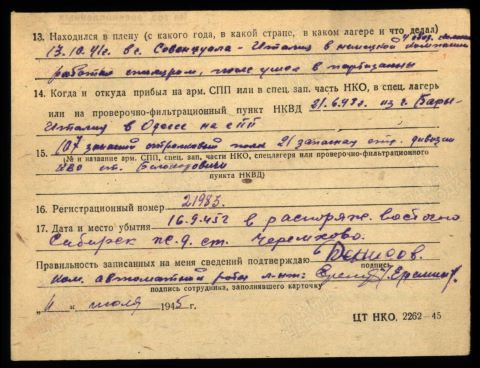 13. Находился в плену (с какого года, в какой стране, в каком лагере и что делал)
17.10.41г. в с. Италия в немецкой
работал после ушел в партизаны
14. Когда и откуда прибыл на арм. СПП или в спец. зап. часть НКО, в спец. лагерь
или на проверочно-фильтрационный пункт НКВД 31.6.45г из г. Бары-
Италия в Одессе на СПП
15. 107 запасной стрелковый полк 21 запасная стр. дивизии
(№ и название арм. СПП, спец. зап. части НКО, спецлагеря или проверочно-фильтрационного
ст.
пункта НКВД)
16. Регистрационный номер 21983.
17. Дата и место убытия 16.9.45г в распоряж. восточно
Сибирск ж.д. ст. Черемхово.
Правильность записанных на меня сведений подтверждаю Денисов.
подпись
Ком. автоматной роты л-нт: /Еремин/.
подпись сотрудника, заполнявшего карточку
„4 “ июля 1945г.
ЦТ НКО, 2262—45